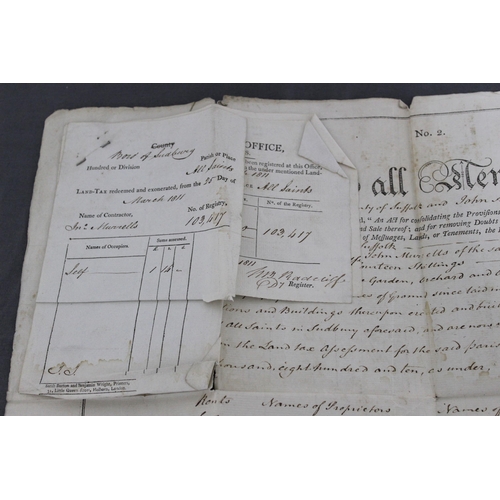 County
Boro' of Sudbury
Hundred or Division
Parish or Place
All Saints
LAND-TAX redeemed and exonerated, from the 25 Day of
March 1811
Name of Contractor,
No. of Registry,
Jno. Murrells
103,417
Names of Occupiers.
Sums assessed.
£. s. d.
Self
1 14
Little Queen Street, Holborn, London.
OFFICE,
been registered at this Office,
the under mentioned Land-
1811
All Saints
No. of the Registry.
103,417
1811
Register.
No. 2.
to all Men
of Suffolk and John
"An Act for consolidating the Provisions
and Sale thereof; and for removing Doubts
of Messuages, Lands, or Tenements, the
Suffolk
John Murrells of the
fourteen Shillings
Garden, orchard and
of Ground since laid
and Buildings thereupon erected and
all Saints in Sudbury aforesaid, and are now
in the Land tax Assessment for the said parish
thousand, eight hundred and ten, as under;
Rents
Names of Proprietors
Names of